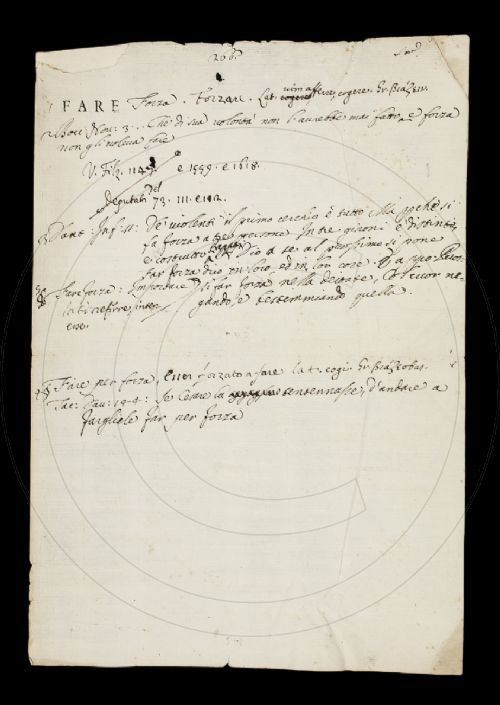 206.
FARE Forza. Forzare. Lat. vim afferre, cogere. Gr. βιάζειν.
Bocc. Nov. 3. Che di sua volontà non l'avrebbe mai fatto, e forza
non gli voleva fare
V. Filo. 1147. e 1559. e 1618.
Deputati 73. 111. e 112.
Dant. Inf. 11: De' violenti il primo cerchio è tutto Ma perchè si
fa forza a tre persone In tre gironi è distinto,
e costrutto A Dio a se al prossimo si pone
far forza dico in loro, ed in lor cose.
Far forza: si far forza nella deitate, Col cuor ne-
gando e bestemmiando quella.
Fare per forza, esser forzato a fare lat. cogi. Gr. βιάζεσθαι.
Tac. Dav.: Se Cesare la tentennasse, d'andare a
fargliele far per forza